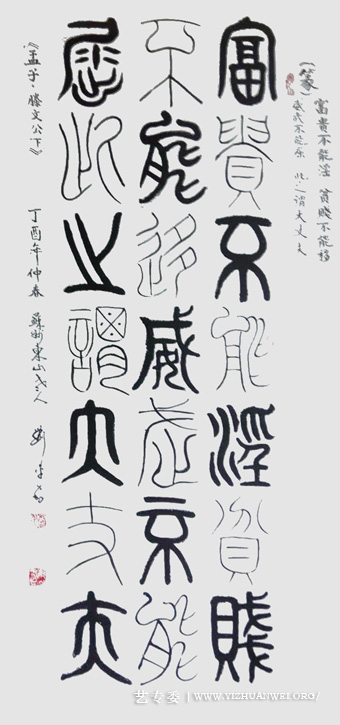 （篆）富貴不能淫 貧賤不能移
威武不能屈 此之謂大丈夫
富貴不能淫貧賤
不能移威武不能
屈此之謂大丈夫
《孟子·滕文公下》
丁酉年仲春 蘇州東山
艺专委 | WWW.YIZHUANWEI.ORG/